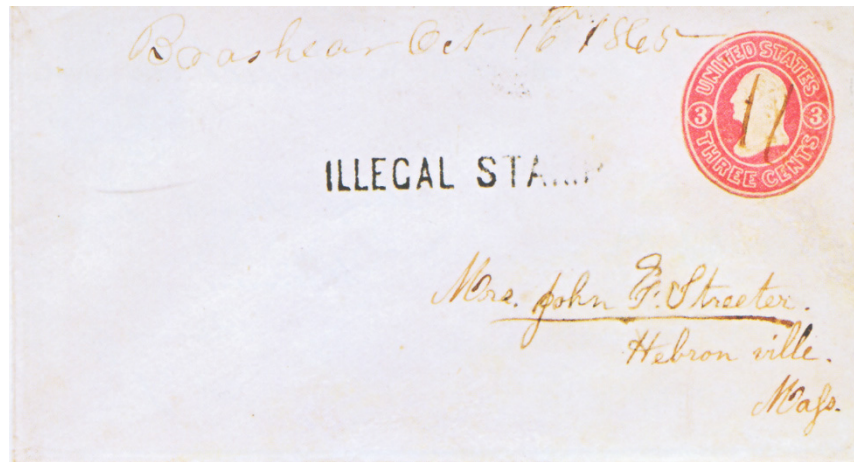 Brashear Oct 16th 1865
UNITED STATES
3 3
THREE CENTS
ILLEGAL STAMP
Mrs. John F. Streeter.
Hebron ville.
Mass.